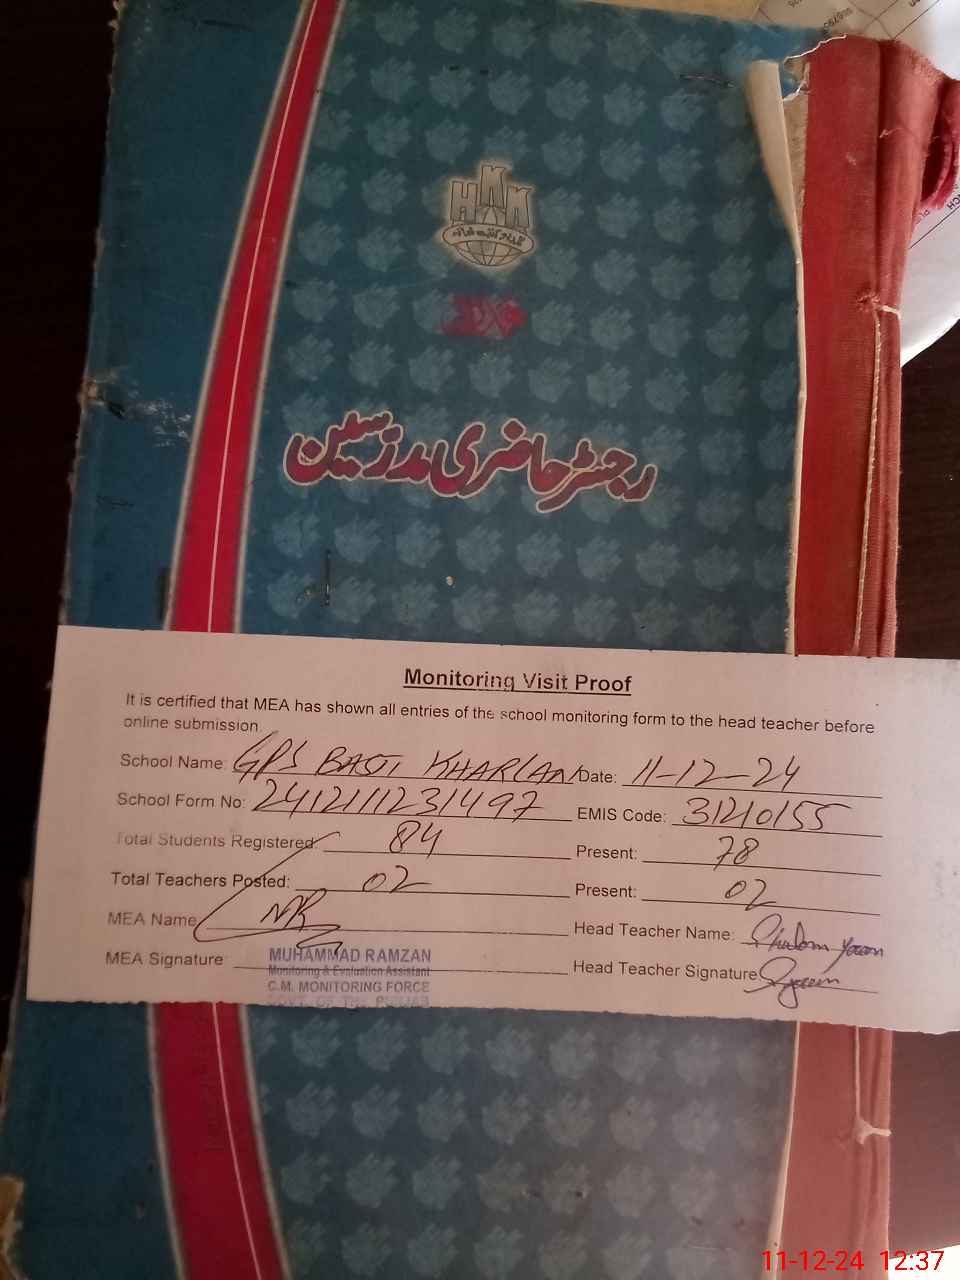 HKK
رجسٹر حاضری مدرسین
Monitoring Visit Proof
It is certified that MEA has shown all entries of the school monitoring form to the head teacher before
online submission.
School Name: GPS BASTI KHARLAN Date: 11-12-24
School Form No: 2412111231497 EMIS Code: 31210155
Total Students Registered: 84 Present: 78
Total Teachers Posted: 02 Present: 02
MEA Name: MR Head Teacher Name:
MEA Signature: Head Teacher Signature
MUHAMMAD RAMZAN
Monitoring & Evaluation Assistant
C.M. MONITORING FORCE
GOVT. OF THE PUNJAB
11-12-24 12:37